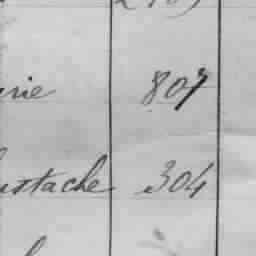 rie 807
ustache 304